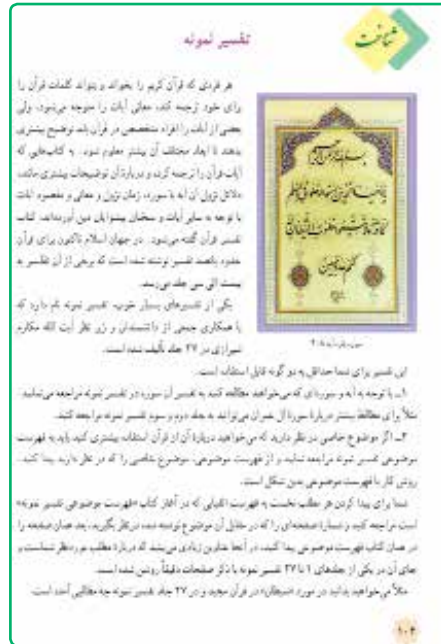 شناخت
تفسیر نمونه
هر فردی که قرآن کریم را بخواند و بتواند کلمات قرآن را
برای خود ترجمه کند، معانی آیات را متوجه می‌شود، ولی
بعضی از آیات را افراد متخصص در قرآن باید توضیح بیشتری
بدهند تا ابعاد مختلف آن بیشتر معلوم شود. به کتاب‌هایی که
آیات قرآن را ترجمه کرده و درباره‌ی آن توضیحات بیشتری مانند،
دلائل نزول آن آیه یا سوره، زمان نزول و معانی و مقصود آیات
با توجه به سایر آیات و سخنان پیشوایان دین آورده‌اند، کتاب
تفسیر قرآن گفته می‌شود. در جهان اسلام تاکنون برای قرآن
حدود پانصد تفسیر نوشته شده است که برخی از آن تفاسیر به
بیست الی سی جلد می‌رسد.
یکی از تفسیرهای بسیار خوب، تفسیر نمونه نام دارد که
با همکاری جمعی از دانشمندان و زیر نظر آیت الله مکارم
شیرازی در ۲۷ جلد تألیف شده است.
این تفسیر برای شما حداقل به دو گونه قابل استفاده است.
۱ـ با توجه به آیه و سوره‌ای که می‌خواهید مطالعه کنید به تفسیر آن سوره در تفسیر نمونه مراجعه می‌نمایید.
مثلاً برای مطالعه بیشتر درباره‌ی سوره آل عمران می‌توانید به جلد دوم و سوم تفسیر نمونه مراجعه کنید.
۲ـ اگر موضوع خاصی در نظر دارید که می‌خواهید درباره‌ی آن از قرآن استفاده بیشتری کنید باید به فهرست
موضوعی تفسیر نمونه مراجعه نمایید و از فهرست موضوعی، موضوع خاصی را که در نظر دارید پیدا کنید.
روش کار با فهرست موضوعی بدین شکل است.
شما برای پیدا کردن هر مطلب نخست به فهرست الفبایی که در آغاز کتاب «فهرست موضوعی تفسیر نمونه»
است مراجعه کنید و شماره صفحه‌ای را که در مقابل آن موضوع نوشته شده در نظر بگیرید، بعد همان صفحه را
در همان کتاب فهرست موضوعی پیدا کنید، در آنجا عناوین زیادی می‌بینید که درباره‌ی مطلب موردنظر شماست و
جای آن در یکی از جلدهای ۱ تا ۲۷ تفسیر نمونه با ذکر صفحات دقیقاً روشن شده است.
مثلاً می‌خواهید بدانید در مورد «شیطان» در قرآن مجید و در ۲۷ جلد تفسیر نمونه چه مطالبی آمده است.
۱۰۴